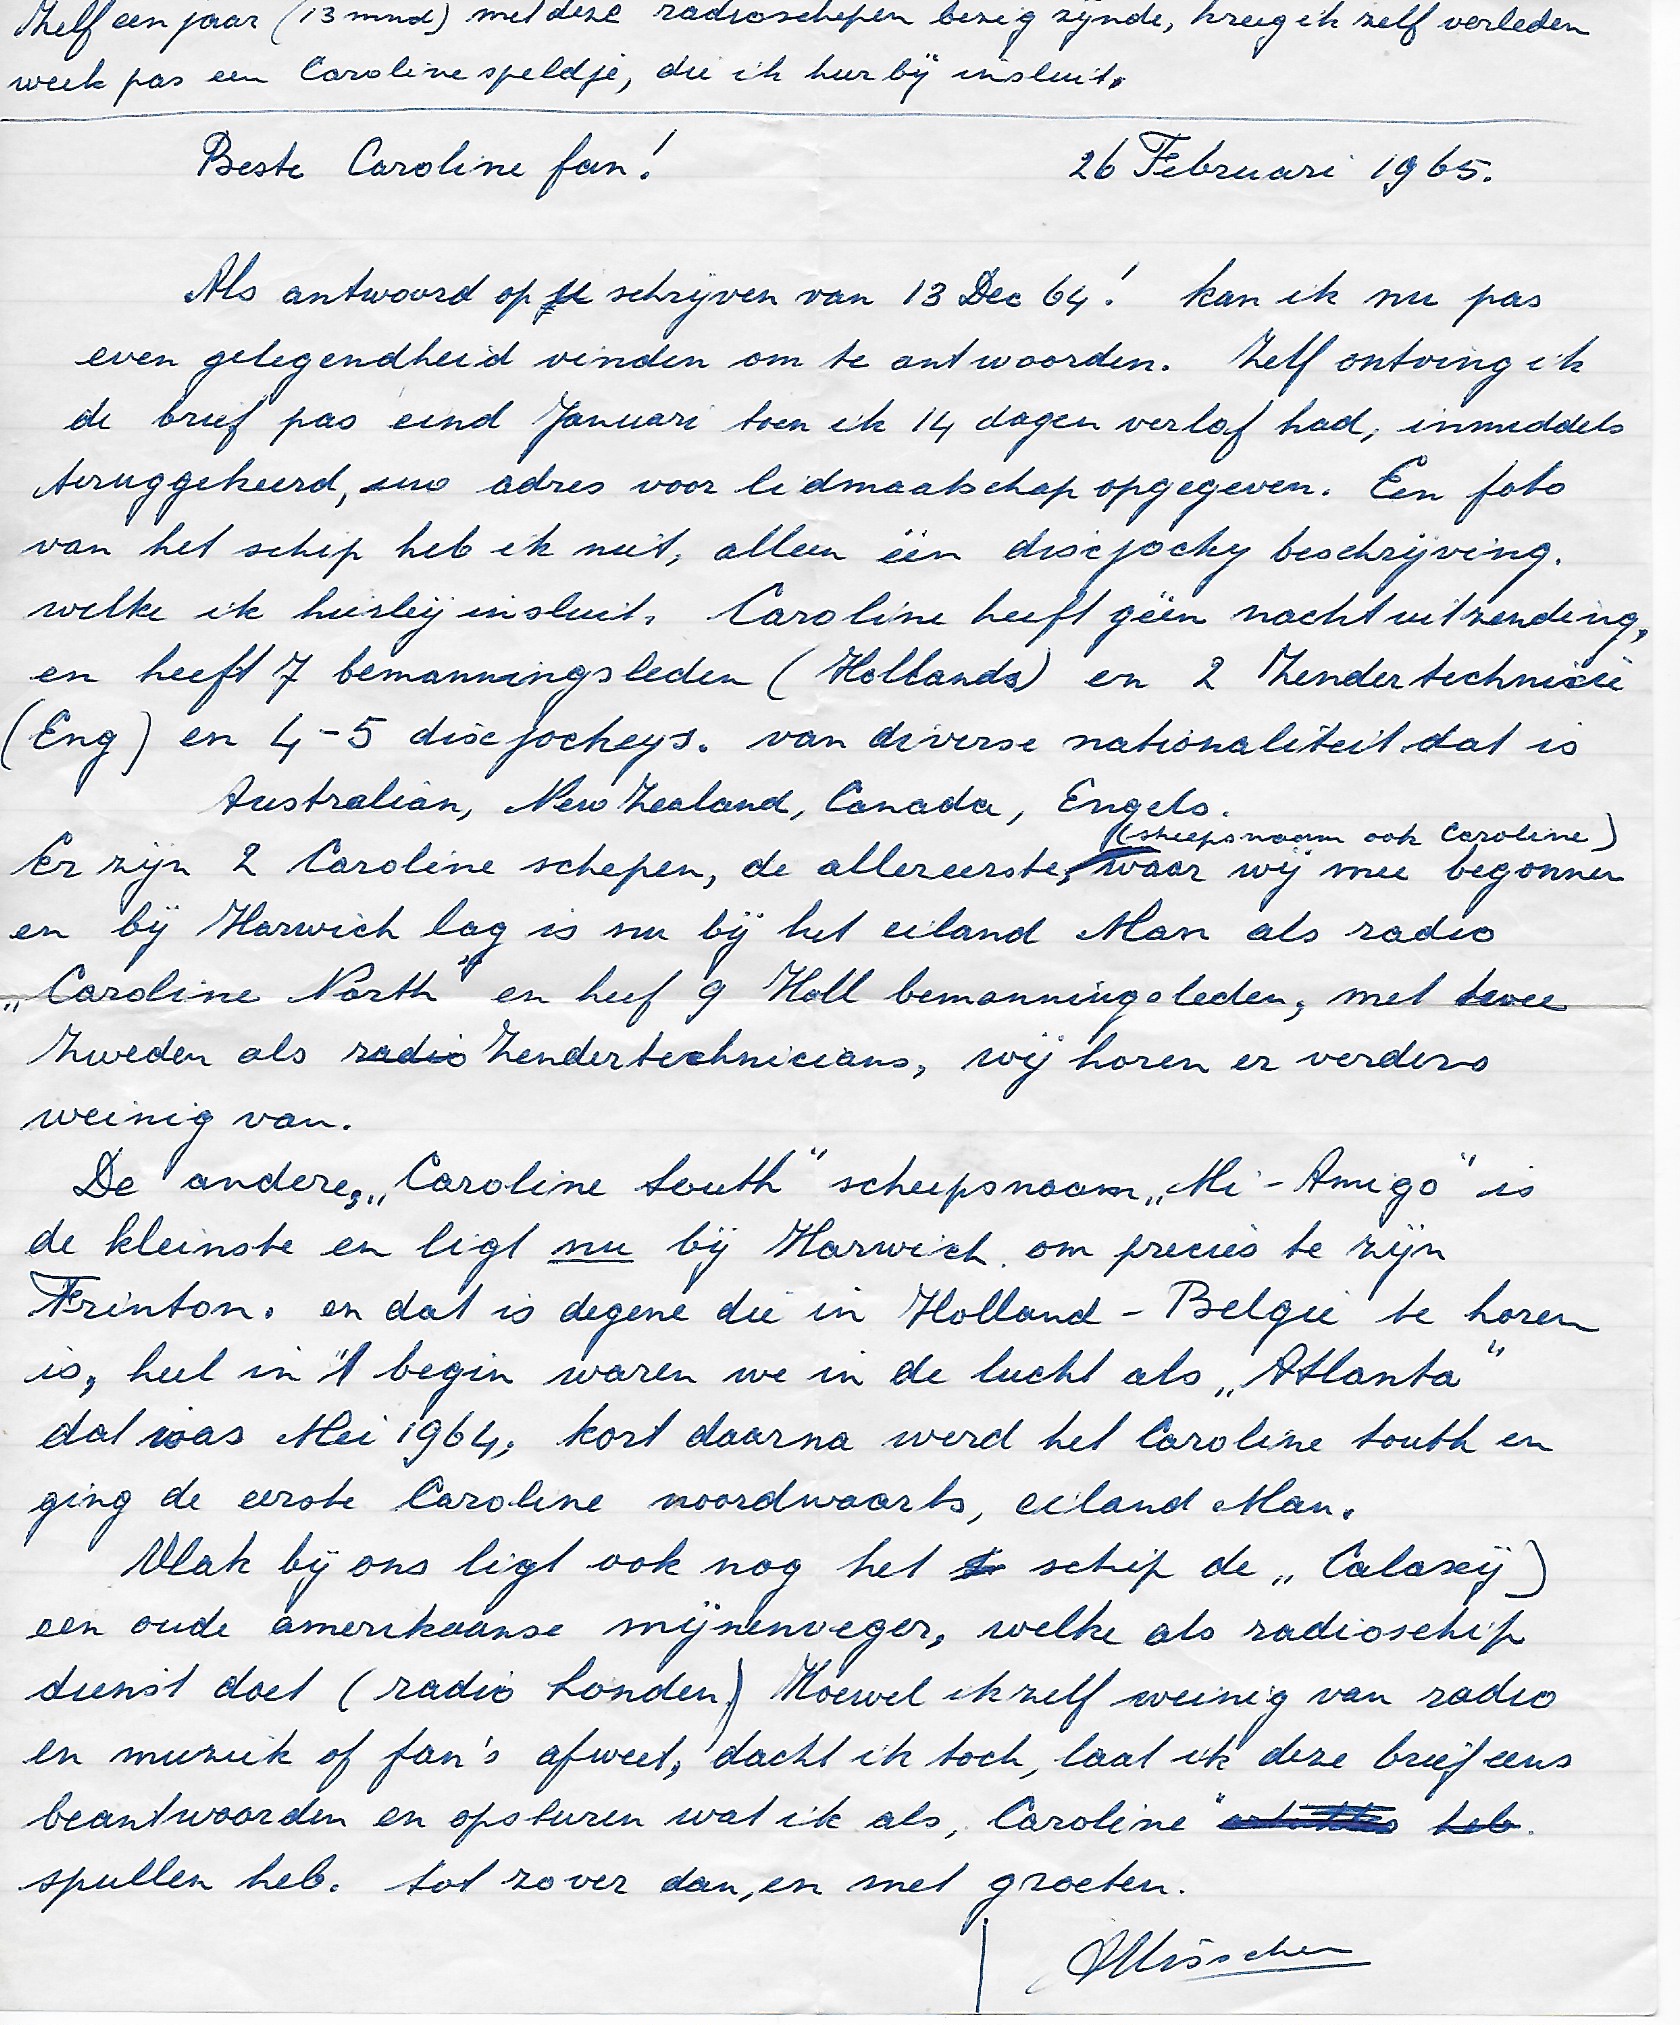 Zelf een jaar (13 mnd) met deze radioschepen bezig zijnde, kreeg ik zelf verleden
week pas een Caroline speldje, die ik hierbij insluit.
Beste Caroline fan!
26 Februari 1965.
Als antwoord op u schrijven van 13 Dec 64! kan ik nu pas
even gelegendheid vinden om te antwoorden. Zelf ontving ik
de brief pas eind Januari toen ik 14 dagen verlof had, inmiddels
teruggekeerd, uw adres voor lidmaatschap opgegeven. Een foto
van het schip heb ik niet, alleen één discjocky beschrijving.
welke ik hierbij insluit. Caroline heeft géén nachtuitzending,
en heeft 7 bemanningsleden (Hollands) en 2 Zendertechnicie
(Eng) en 4-5 discjockeys. van diverse nationaliteit dat is
Australian, New Zealand, Canada, Engels.
(scheepsnaam ook Caroline)
Er zijn 2 Caroline schepen, de allereerste, waar wij mee begonnen
en bij Harwich lag is nu bij het eiland Man als radio
„Caroline North" en heef 9 Holl bemanningsleden, met twee
Zweden als radio Zendertechnicians, wij horen er verders
weinig van.
De andere, „Caroline South" scheepsnaam „Mi-Amigo" is
de kleinste en ligt nu bij Harwich. om precies te zijn
Frinton. en dat is degene die in Holland - Belgie te horen
is, heel in 't begin waren we in de lucht als „Atlanta"
dat was Mei 1964, kort daarna werd het Caroline South en
ging de eerste Caroline noordwaarts, eiland Man.
Vlak bij ons ligt ook nog het schip de „Calaxij)
een oude amerikaanse mijnenveger, welke als radioschip
dienst doet (radio London) Hoewel ik zelf weinig van radio
en muziek of fan's afweet, dacht ik toch, laat ik deze brief eens
beantwoorden en opsturen wat ik als „Caroline" heb.
spullen heb. tot zover dan, en met groeten.
AVisscher